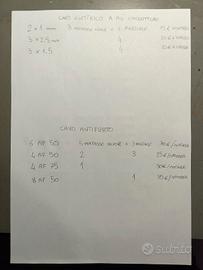 CAVO ELETTRICO A PIÙ CONDUTTORI
2 x 1 mm 3 MATASSE NUOVE + 1 PARZIALE 15 €/MATASSA
3 x 2,5 mm 4
3 x 1.5 4
CAVO ANTIFURTO
6 AF 50 5 MATASSE NUOVE + 3 PARZIALI 30 €/MATASSA
4 AF 50 2 3 25 €/MATASSA
4 AF 75 1 30 €/MATASSA
8 AF 50 1 30 €/MATASSA
Subito